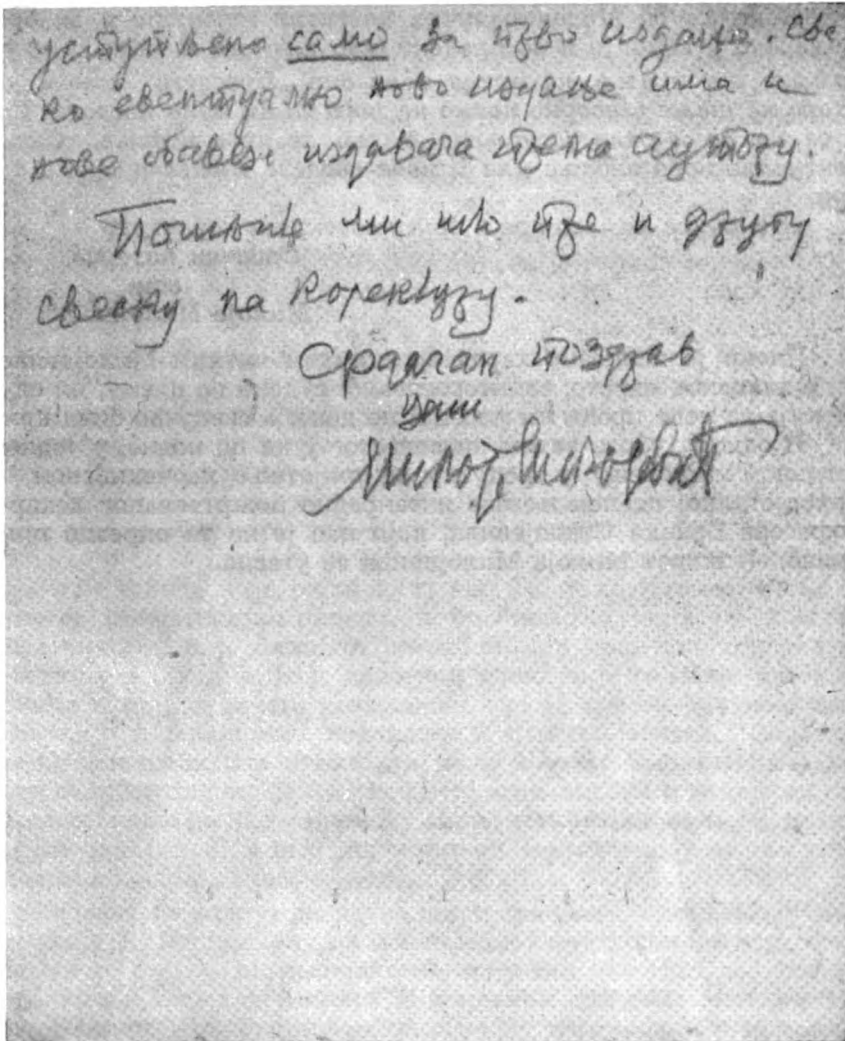 уступљено само за прво издање. Сва-
ко евентуално ново издање има и
нове обавезе издавача према аутору.
Пошљите ми што пре и другу
свеску на коректуру.
Срдачан поздрав
Ваш
Милоје Милојевић